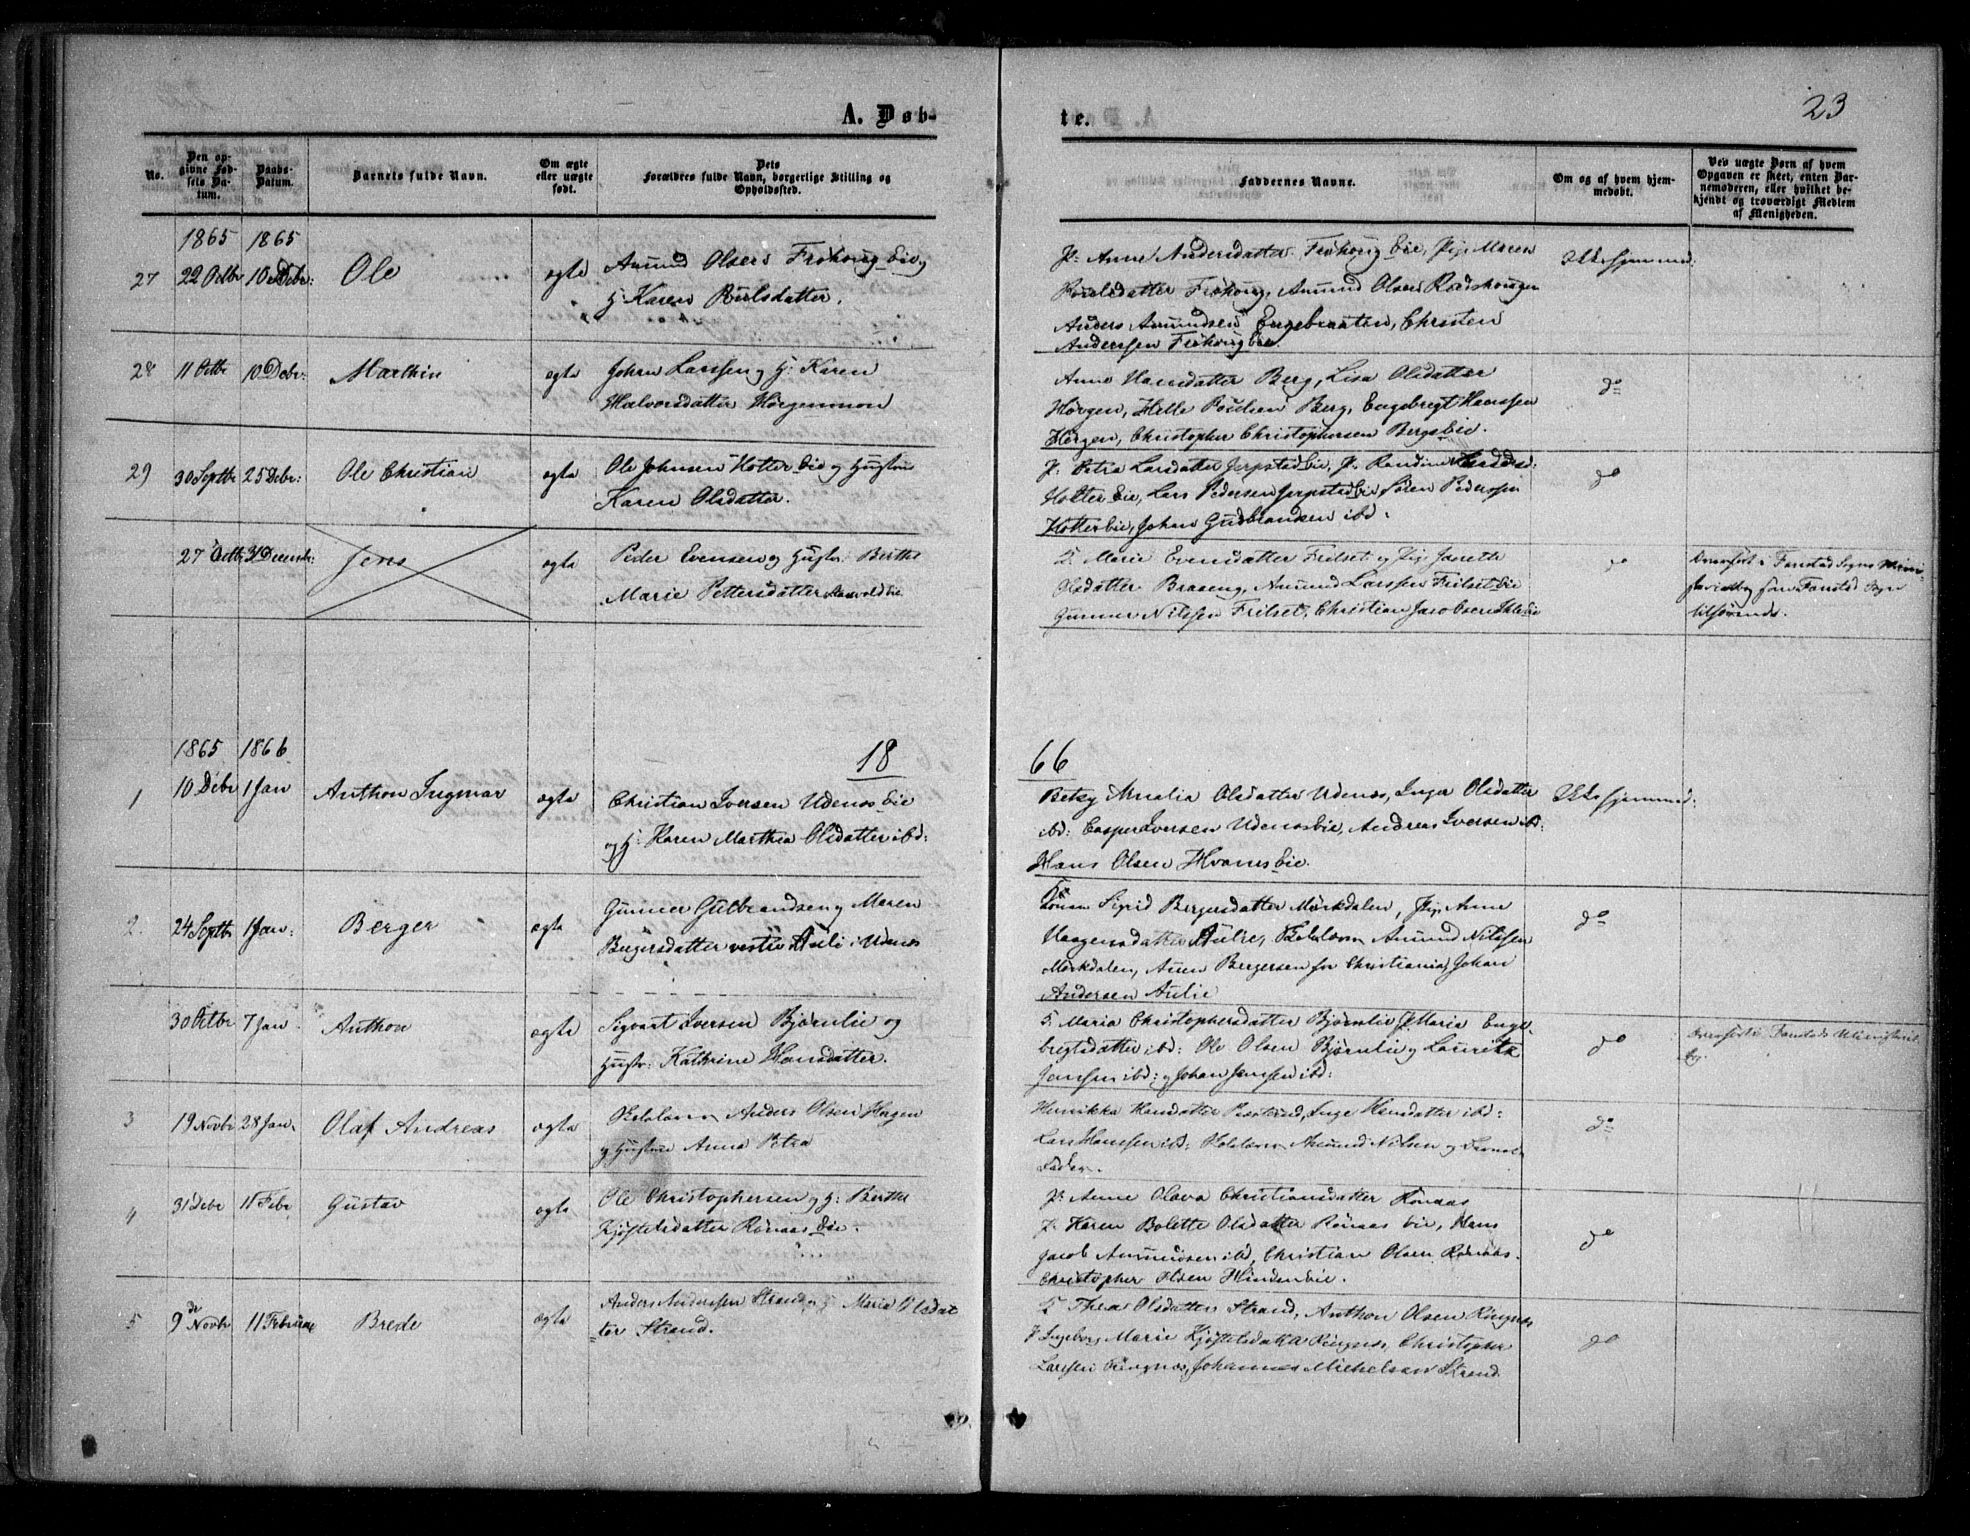 23
A. Døb-
te.
No.
Den op-
givne Fød-
sels Da-
tum.
Daabs-
Datum.
Barnets fulde Navn.
Om ægte
eller uægte
født.
Dets
Forældres fulde Navn, borgerlige Stilling og
Opholdssted.
Faddernes Navne.
Om og af hvem hjem-
medøbt.
Ved uægte Børn af hvem
Opgaven er skeet, enten Bar-
nemoderen, eller hvilket be-
kjendt og troværdigt Medlem
af Menigheden.
1865 1865
27 22 Octbr 10 Debr: Ole ægte
Amund Olsen Frøhoug
Karen
P: Anne Andersdatter Frøhoug Eie, Pig: Maren
Frøhoug, Amund Olsen
Anders Amundsen Engebraaten, Christen
Anderssen Frøhoug Eie
Ikke hjemmed:
28 11 Octbr 10 Debr: Marthin ægte
Johan Larssen og H: Karen
Halvorsdatter Horgenmoen
Anne Hansdatter Berg, Lisa Olsdatter
Horgen, Helle Berg, Engebregt Hanssen
Horgen, Christopher Christophersen Bergseie.
do
29 30 Septbr 25 Debr: Ole Christian ægte
Ole Johnsen Holter Eie og Hustru
Karen Olsdatter.
P: Petra Larsdatter
Holter Eie, Lars Pedersen Søren Pederssen
Holtereie, Johan Gudbrandsen ibd:
do
27 Octbr 31 Decembr: Jens ægte
Peder Evensen og Hustr: Berthe
Marie Pettersdatter
Marie Evensdatter Frilset og Pig: Janette
Olsdatter Braaeng, Amund Larssen Frilset Eie
Gunner Nilssen Frilset, Christian Jacobsen
do
Overført i Fanstad Sogns
for Fanstad Sogn
tilhørende.
18
66
1865 1866
1 10 Debr 1 Jan Anthon Ingmar ægte
Christian Iversen Udenæs Eie
og H: Karen Marthea Olsdatter ibd:
Betzy Amalia Olsdatter Udenæs, Inger Olsdatter
ibd: Casper Iversen Udenæseie, Andreas Iversen ibd:
Hans Olsen Eie.
Ikke hjemmed:
2. 24 Septbr 1 Jan: Berger ægte
Gunner Gulbrandsen og Maren
Bergersdatter vestre Aulie i Udenæs
Konen Sigrid Bergersdatter Mørkdalen, Pig. Anne
Haagensdatter Aulie, Amund Nilssen
Mørkdalen, Bergersen fra Christiania, Johan
Andersen Aulie
do
30 Octbr 7 Jan. Anthon ægte
Sigvart Iversen Bjørnlie og
Hustr: Kathrine Hansdatter.
Maria Christophersdatter Bjørnlie, P. Maria Enge-
bregtsdatter ibd: Ole Olsen Bjørnlie og Lauritz
Jansen ibd: og Johan Jensen ibd:
do
Overført i Fanstads
3 19 Novbr 28 Jan. Olaf Andreas ægte
Anders Olsen Hagen
og Hustru Anna Petra
Henrikka Hansdatter Inge Hansdatter ibd:
Lars Hanssen ibd: Amund Nilsen og Barnets
Fader.
do
4 31 Debr 11 Febr. Gustav ægte
Ole Christophersen og H: Berthe
Kjøstelsdatter Rønaas Eie.
P: Anne Olava Christiansdatter Rønaas
P: Karen Bolette Olsdatter Rønaas Eie, Hans
Jacob Amundsen ibd, Christian Olsen Rønaas.
Christopher Olsen Eie.
do
5 9de Novbr 11 Februar Brede ægte
Anders Anderssen Strand og Maria Olsdat-
ter Strand.
Thea Olsdatter Strand, Anthon Olsen Ringnæs
P Ingeborg Marie Kjøstelsdatter Ringnæs, Christopher
Larssen Ringnæs, Johannes Michelsen Strand
do